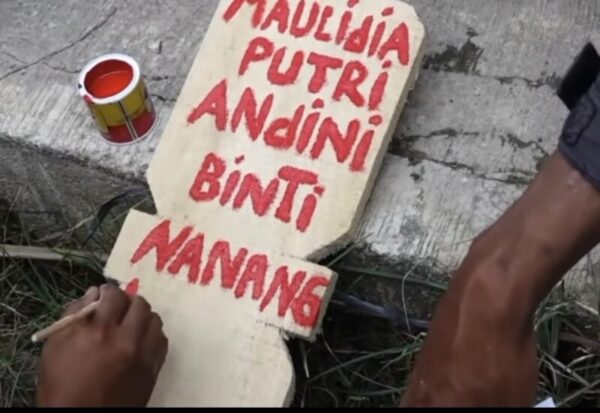 MAULidiA
PUTRi
ANdiNi
BiNTi
NANANG